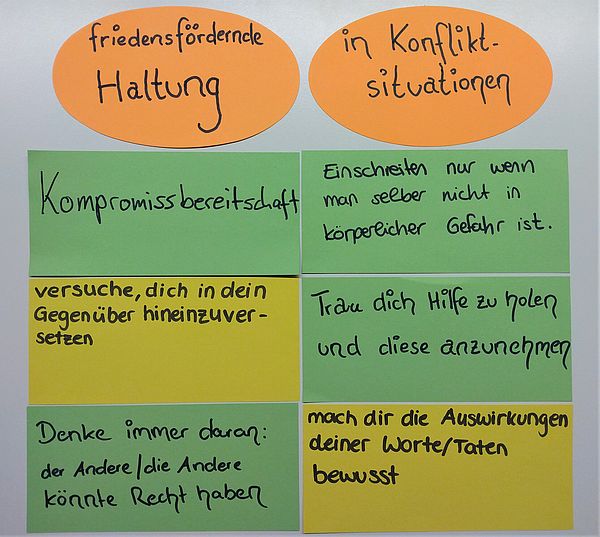 friedensfördernde
Haltung
in Konflikt-
situationen
Kompromissbereitschaft
Einschreiten nur wenn
man selber nicht in
körperlicher Gefahr ist.
versuche, dich in dein
Gegenüber hineinzuver-
setzen
Trau dich Hilfe zu holen
und diese anzunehmen
Denke immer daran:
der Andere/die Andere
könnte Recht haben
mach dir die Auswirkungen
deiner Worte/Taten
bewusst